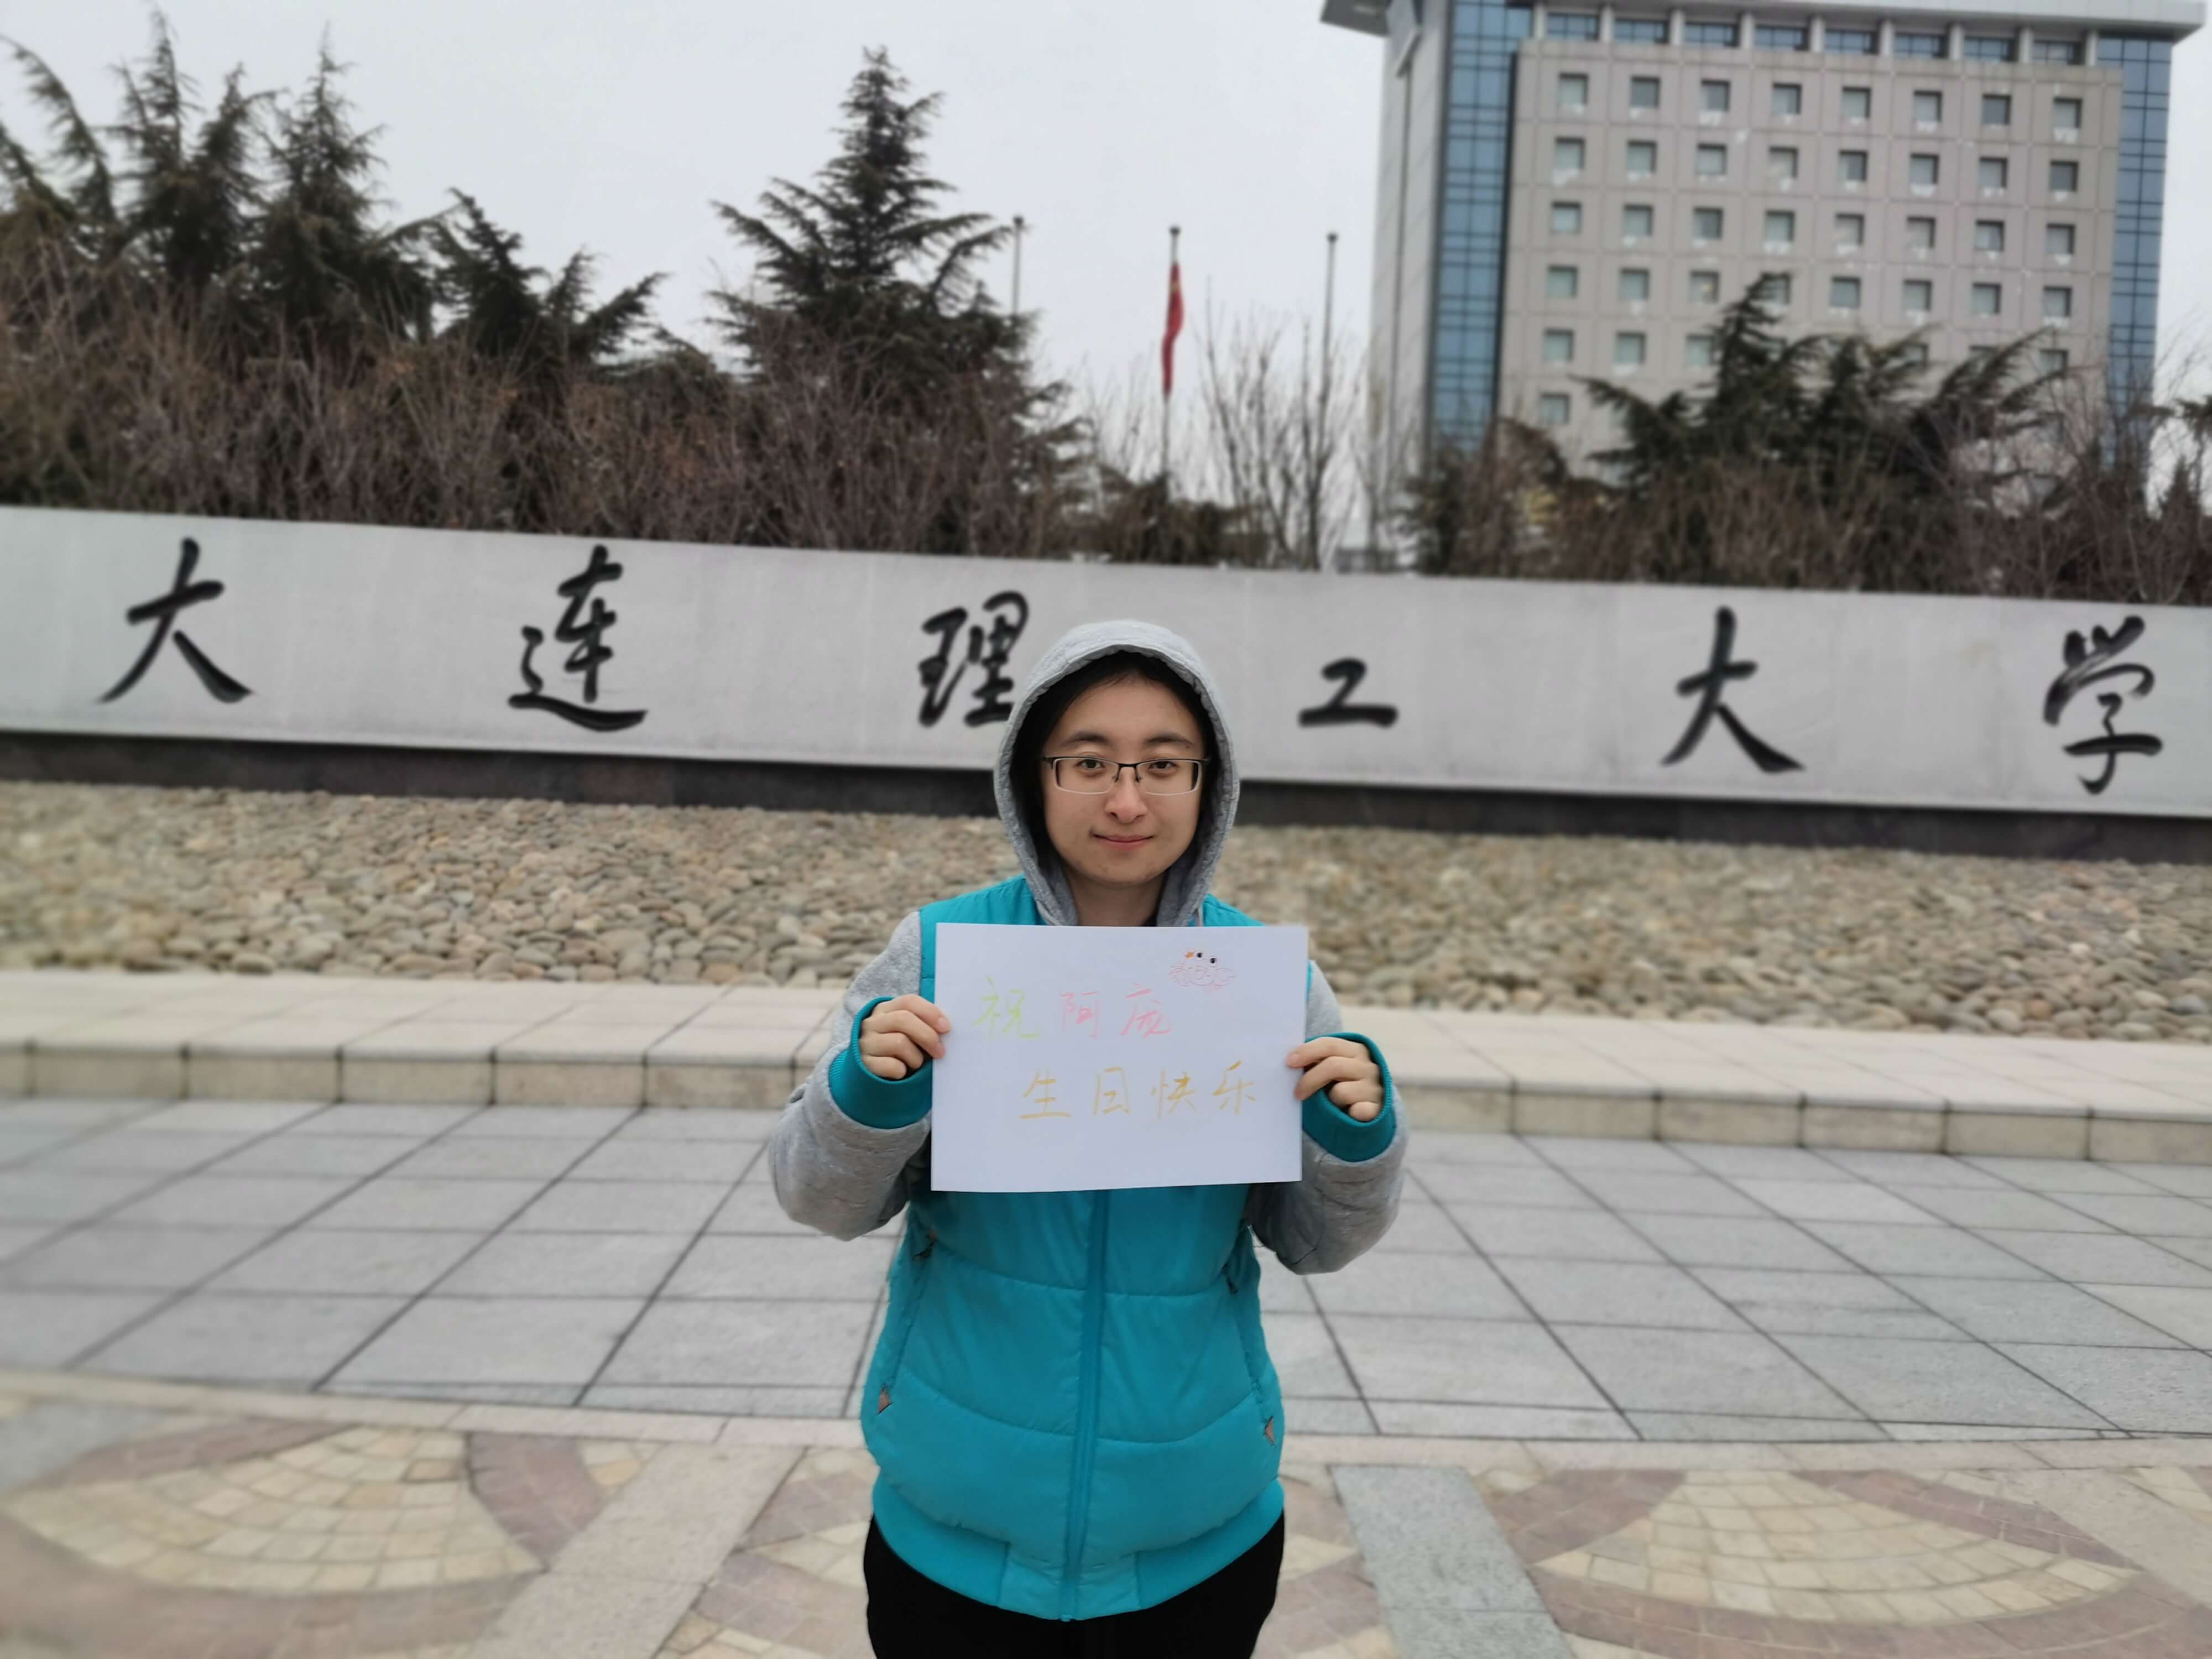 大连理工大学
祝阿庞
生日快乐